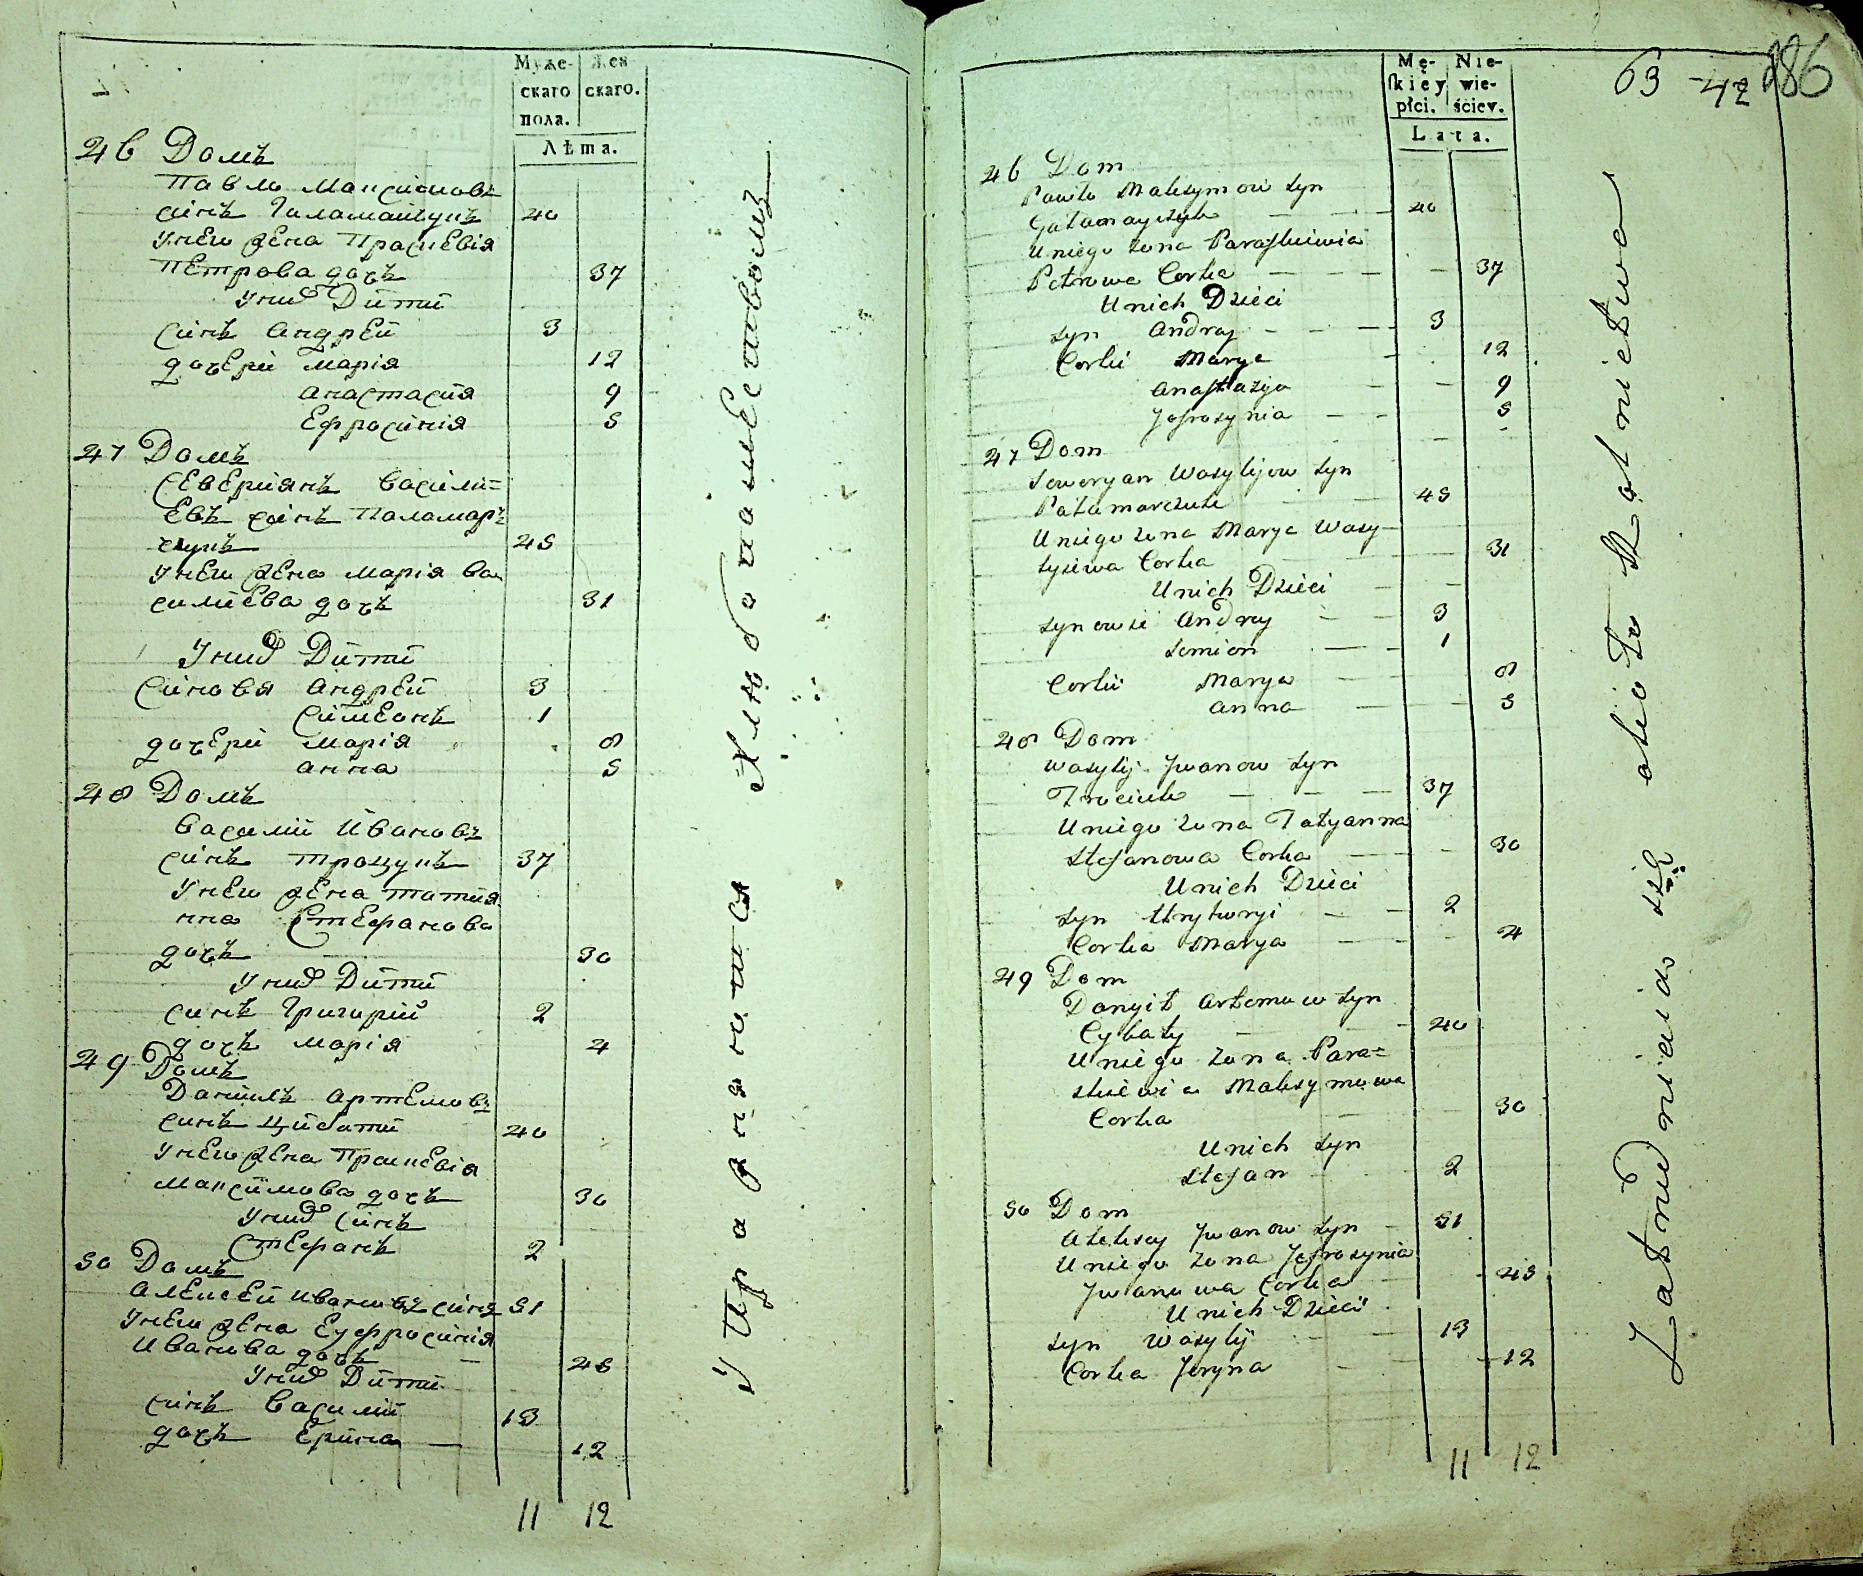 Муже-
скаго
пола.
Жен
скаго.
Лѣта.
46 Домъ
Павло Максимовъ
синъ Галамайчукъ 40
Унего жена Праскевія
Петрова дочь 37
Уних Дити
Синъ Андрей 3
дочери Марія 12
Анастасия 9
Ефросинія 5
47 Домъ
Северіянъ Васили=
евъ синъ Паламар
чукъ 45
Унего жена Марія Ва
силиева дочь 31
Уних Дити
Синовя Андрей 3
Симеонъ 1
дочери Марія 8
Анна 5
48 Домъ
Василий Ивановъ
синъ Троцукъ 37
Унего жена Татия
нна Стефанова
дочь 30
Уних Дити
синъ Григорий 2
дочь Марія 4
49 Домъ
Данилъ Артемовъ
синъ Цибатий 40
Унего жена Праскевія
Максимова дочь 30
Уних Синъ
Стефанъ 2
50 Домъ
Алексей Ивановъ синъ 51
Унего жена Еуфросинія
Иванова дочь 45
Уних Дити
синъ Василий 13
дочь Ерина 12
11 12
Упражняются Хлебопашествомъ
Mę-
skiey
płci.
Nie-
wie-
ściey.
Lata.
63 42 186
46 Dom
Pawło Maksymow syn
Gałamayczuk 40
Uniego żona Paraskiewia
Petrowa Corka 37
Unich Dzieci
syn Andrey 3
Corki Marya 12
Anastazya 9
Jefrosynia 5
47 Dom
Soweryan Wasylijow syn
Pałamarczuk 45
Uniego żona Marya Wasy-
lyiewa Corka 31
Unich Dzieci
synowie Andrey 3
Semion 1
Corki Marya 8
Anna 5
48 Dom
Wasylij Jwanow syn
Trociuk 37
Uniego żona Tatyanna
Stefanowa Corka 30
Unich Dzieci
syn Hryhoryi 2
Corka Marya 4
49 Dom
Danyił Artemow syn
Cybaty 40
Uniego żona Para=
skiewia Maksymowa
Corka 30
Unich syn
Stefan 2
50 Dom
Aleksey Jwanow syn 51
Uniego żona Jefrosynia
Jwanowa Corka 45
Unich Dzieci
syn Wasylij 13
Corka Jeryna 12
11 12
Zatrudniaią się około Rolnictwa